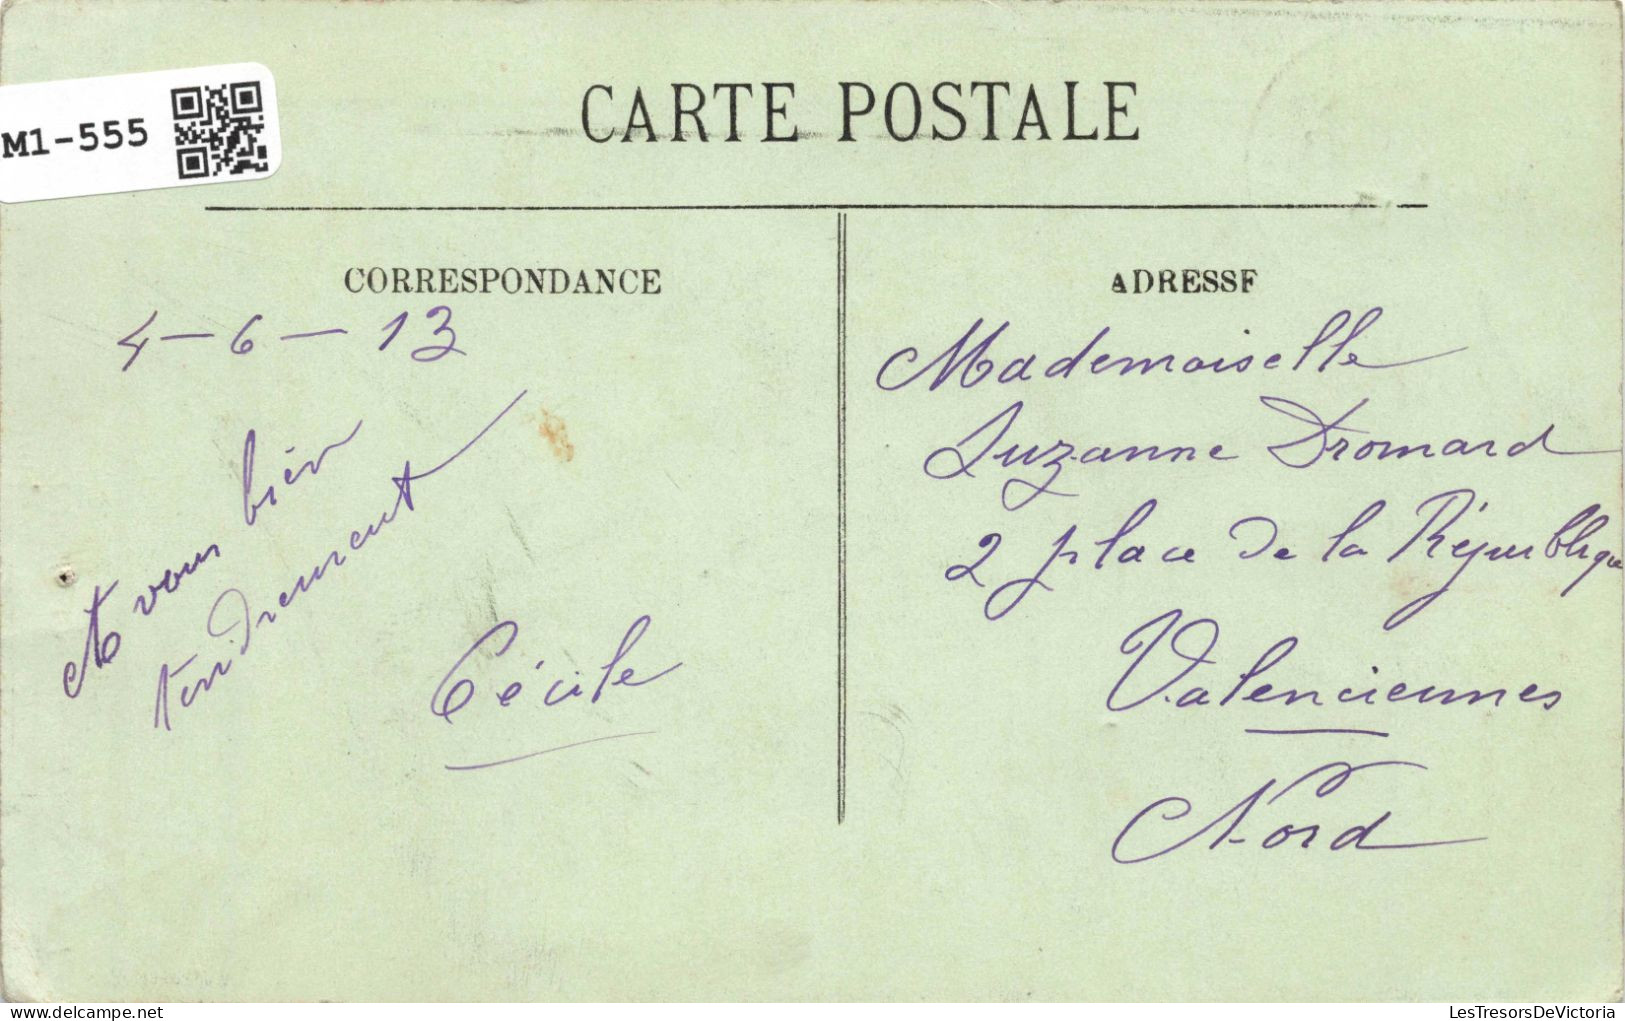 M1-555
CARTE POSTALE
CORRESPONDANCE
4-6-13
A vous bien
tendrement
Cécile
ADRESSE
Mademoiselle
Suzanne Dromard
2 place de la République
Valenciennes
Nord
Delcampe.net
LesTresorsDeVictoria